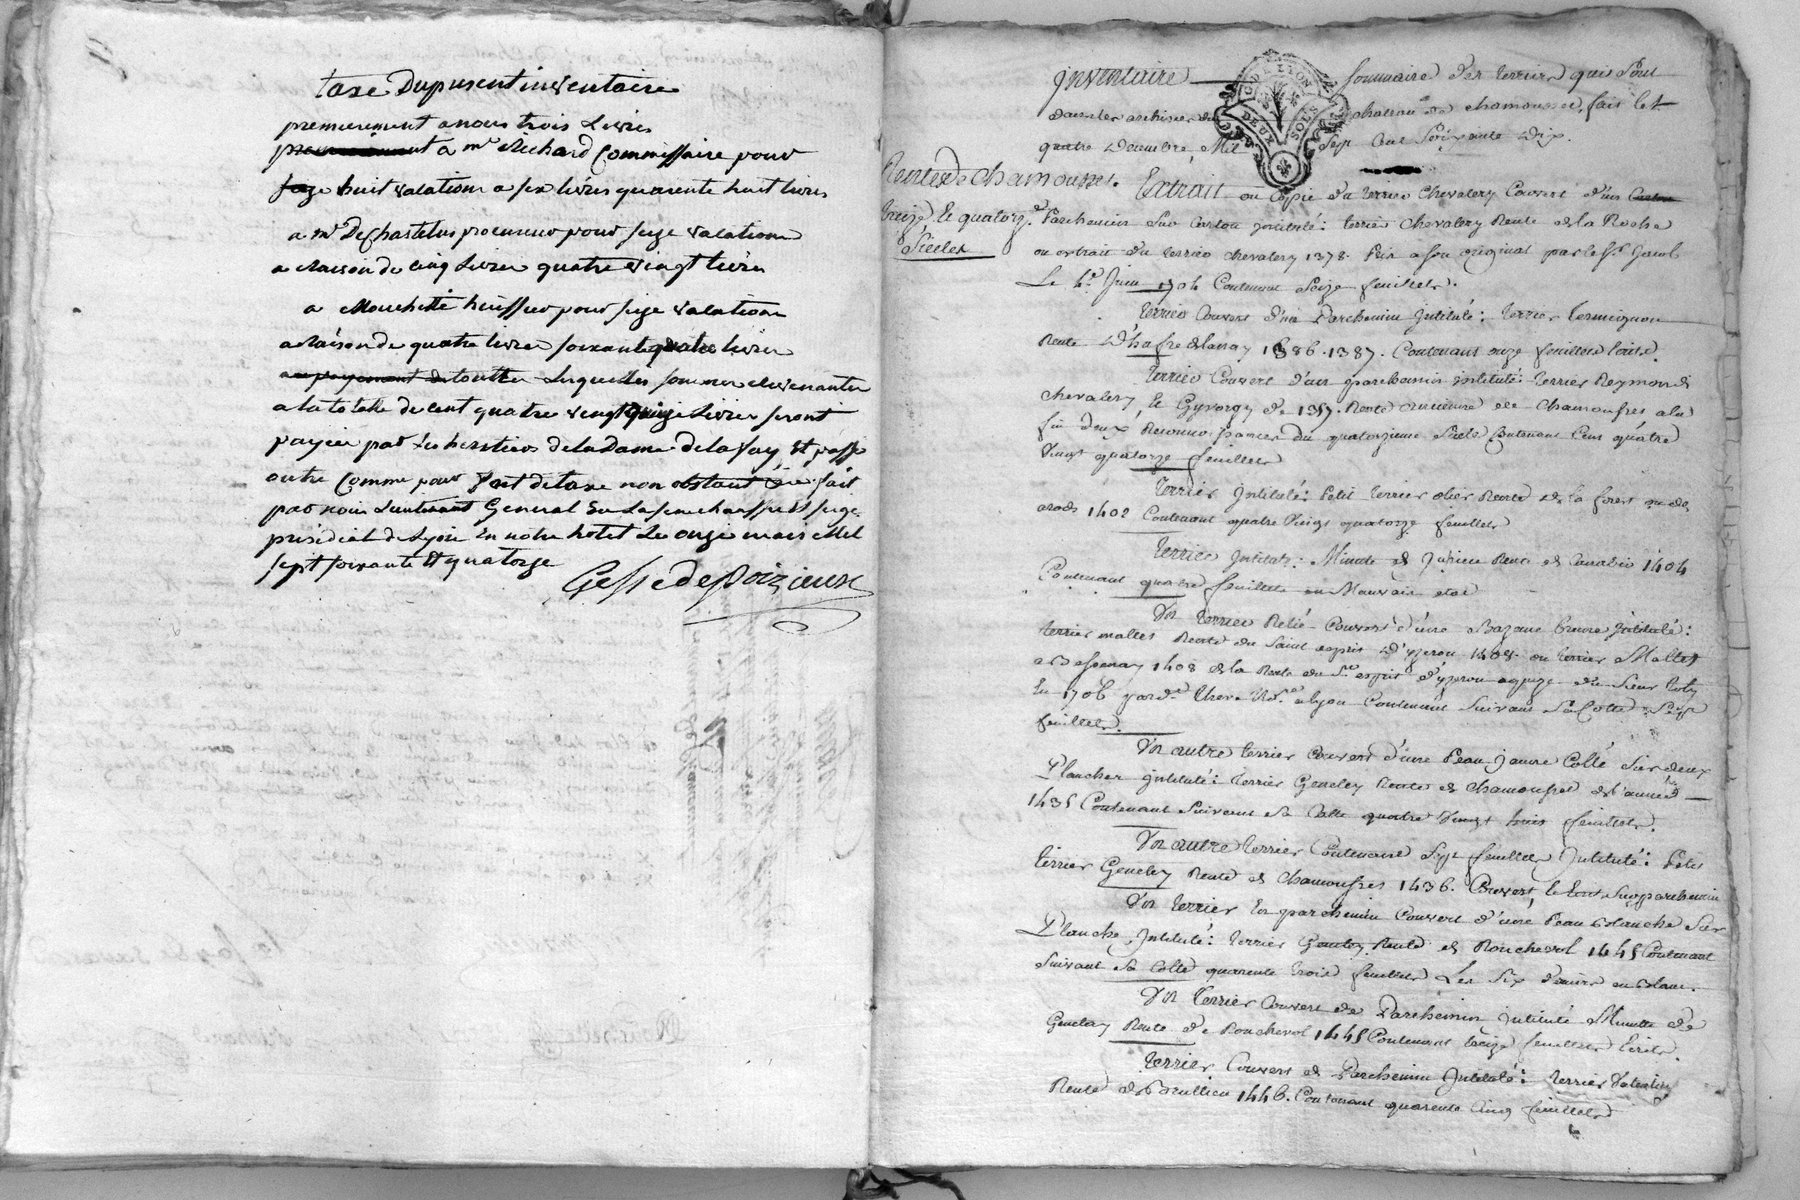 taxe Du present inventaire
premierement a nous trois Livres
a mr Richard Commissaire pour
huit vacations a six livres quarente huit livres
a mr De Chastelus procureur pour seize vacations
a Raison de cinq Livres quatre vingt livres
a Mouchette huissier pour seize vacations
a raison de quatre livres soixante quatre livres
toutes Lesquelles sommes Revenantes
a la totalle de cent quatre vingt quinze Livres seront
payées par Les heritiers de la Dame de la fay Et passé
outre Comme pour fait de taxe non obstant fait
par nous Lieutenant General En La senechaussée Et siege
présidial de Lyon En notre hotel Le onze mars Mil
sept soixante Et quatorze
Gesse de Poizieux
inventaire sommaire des terriers qui sont
dans les archives du chateau de chamousset, fait le
quatre Decembre Mil Sept Cent Soixante Dix.
G. DE LYON
DEUX SOLS
Rentes de Chamousset.
treize, le quatorze
Siècles
Extrait ou Copie du terrier Chevalery Couvert d'un
Parchemin sur Carton intitulé: terrier Chevalery Rente de la Roche
ou extrait du terrier chevalery 1378. Pris a son original par le Sr
Le 4e Juin 1704 Contenant Seize feuillets.
terrier Couvert d'un Parchemin Intitulé: terrier termignon
Rente 1386. 1387. Contenant onze feuillets
terrier Couvert d'un parchemin intitulé: terrier Reymond
chevalery de 1357. Rente ancienne de Chamousset a la
fin deux Reconnoissances du quatorzieme Siècle Contenant Cent quatre
Vingt quatorze feuillets
terrier Intitulé: Petit terrier Rente de la forest
1402 Contenant quatre Vingt quatorze feuillets
terrier Intitulé: Minute de Rente de 1404
Contenant quatre feuillets en Mauvais etat
Un terrier Relié Couvert d'une Bazane Intitulé:
terrier mallet Rente du Saint esprit D'yzeron 1408. ou terrier Mallet
a Bessenay 1408 de la Rente du St esprit d'yzeron du Sieur
En 1706 par a Lyon Contenant Suivant Sa Cotte Seize
feuillets.
Un autre terrier Couvert d'une Peau Jaune Collé Sur deux
Planches intitulé: terrier Geneley Rente de Chamousset de l'année
1435 Contenant Suivant Sa Cotte quatre Vingt huit feuillets.
Un autre terrier Contenant Sept feuillets Intitulé: Petit
terrier Geneley Rente de Chamousset 1436. Couvert parchemin
Un terrier En parchemin Couvert d'une Peau Blanche Sur
Planche, Intitulé: terrier Geneley Rente de Ronchevol 1445 Contenant
Suivant Sa Cotte quarente trois feuillets Les Six derniers en Blanc.
Un terrier Couvert de Parchemin Intitulé Minutte de
Genelay Rente de Ronchevol 1445 Contenant treize feuillets Ecrits.
terrier Couvert de Parchemin Intitulé: terrier
Rente de Brullieu 1446. Contenant quarente Cinq feuillets